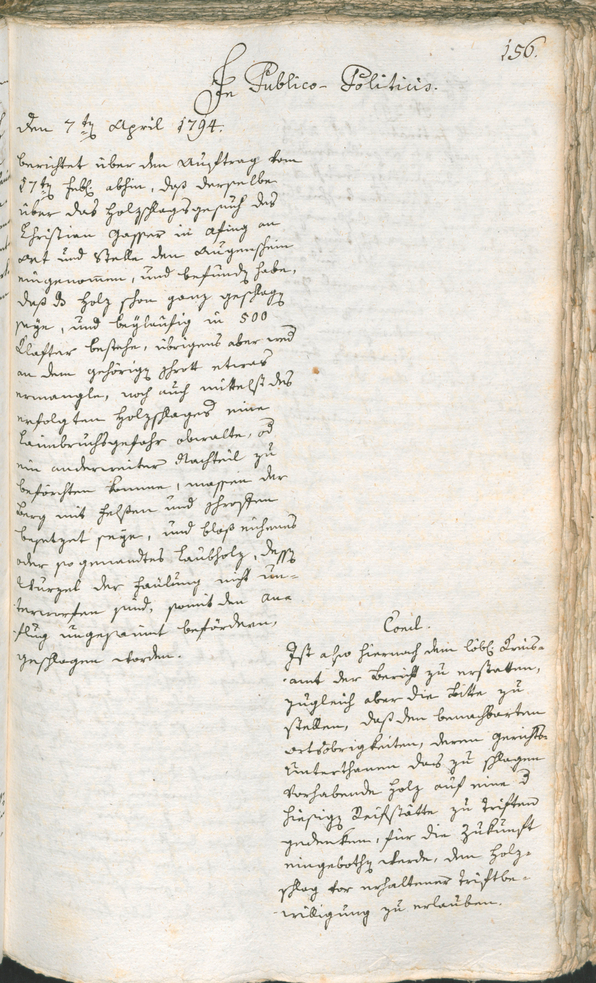 156.
In Publico-Politicis.
Den 7ten April 1794.
berichtet über den Auftrag vom
17ten Feb: abhin, daß derselbe
über das Holzschlagsgesuch des
Christian Gasser in Afing an
Ort und Stelle den Augenschein
eingenommen, und befunden habe,
daß das Holz schon ganz geschlagen
seye, und beyläufig in 500
Klafter bestehe, übrigens aber weder
an dem gehörigen etwas
ermangle, noch auch mittelst des
erfolgten Holzschlages eine
Lainbruchsgefahr obwalte, oder
ein anderweiter Nachteil zu
beförchten komme, massen der
Berg mit Felsen und Schroffen
besetzet seye, und bloß eichenes
oder so genandtes Laubholz, dessen
Wurzel der Faulung nicht un-
terworfen sind, somit den An-
flug ungesaumt befördern,
geschlagen worden.
Concl.
Ist also hiernach dem löbl: Kreis-
amt der Bericht zu erstatten,
zugleich aber die Bitte zu
stellen, daß den benachbarten
Ortsobrigkeiten, deren Gerichts-
Unterthanen das zu schlagen
vorhabende Holz auf eine der
hiesigen Reifstätte zu triften
gedenken, für die Zukunft
eingebothen werde, den Holz-
schlag vor erhaltener Triftbe-
willigung zu erlauben.